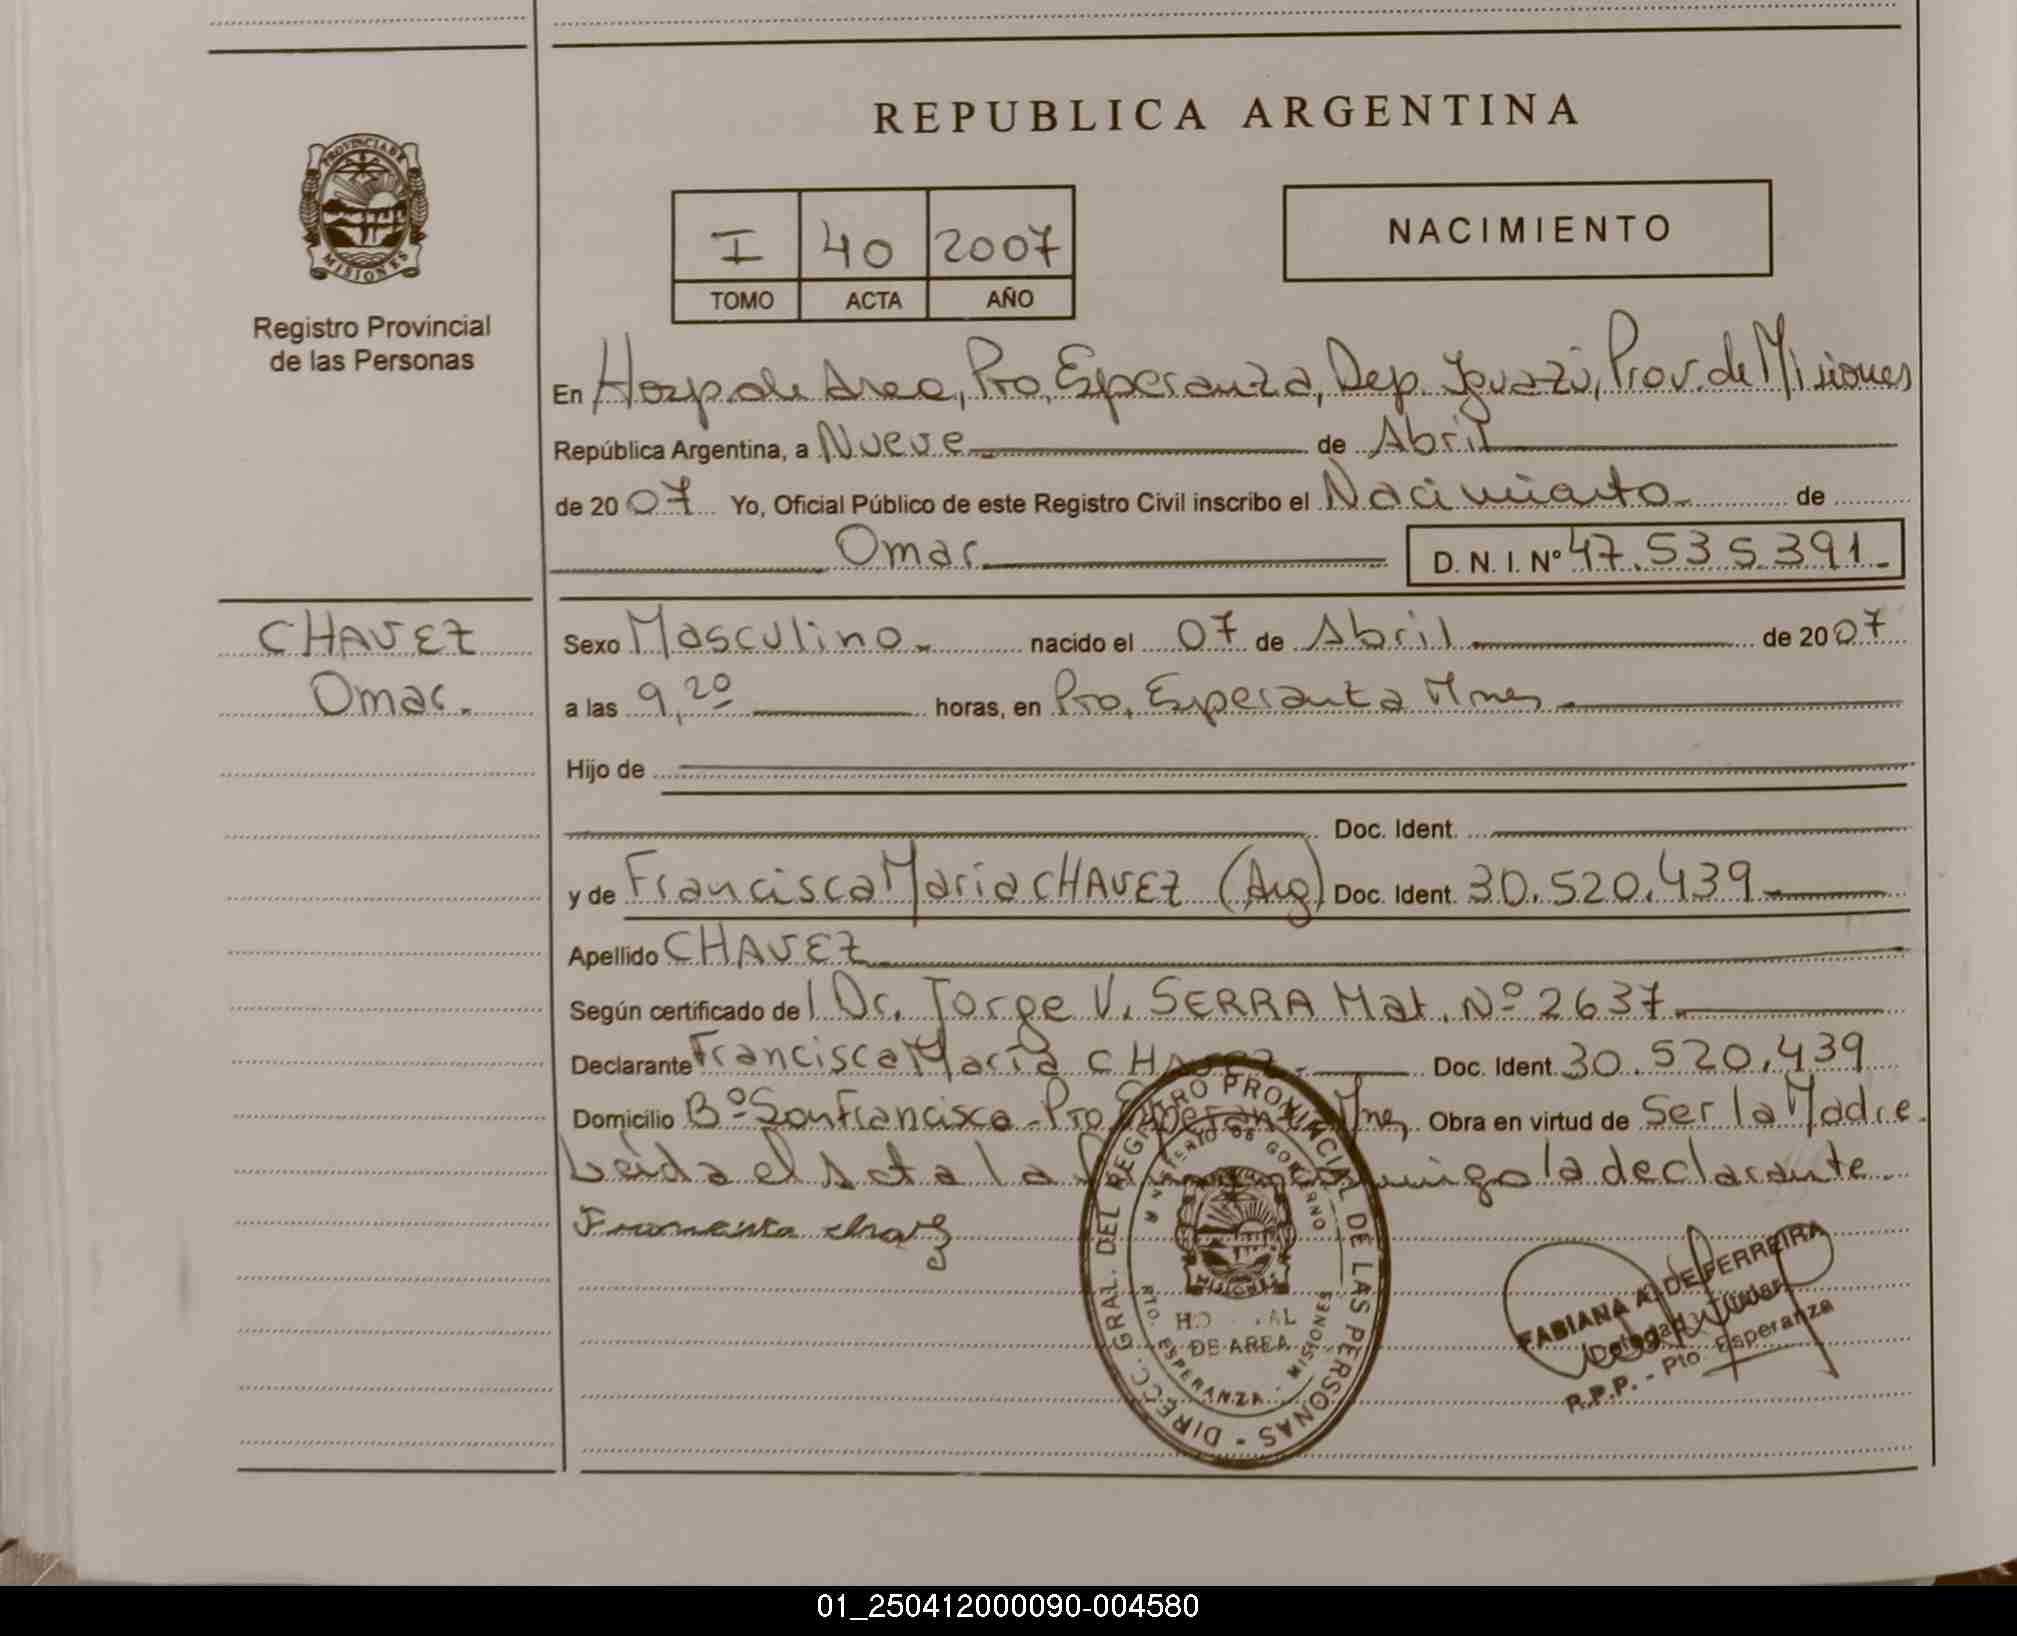 REPUBLICA ARGENTINA
PROVINCIA DE
MISIONES
Registro Provincial
de las Personas
I 40 2007
TOMO ACTA AÑO
NACIMIENTO
En Hosp. de Area, Pto. Esperanza, Dep. Iguazú, Prov. de Misiones
República Argentina, a Nueve de Abril
de 2007 Yo, Oficial Público de este Registro Civil inscribo el Nacimiento de
Omar D. N. I. Nº 47.535.391.-
CHAVEZ
Omar.
Sexo Masculino.- nacido el 07 de Abril de 2007
a las 9,20 horas, en Pto. Esperanza Mnes
Hijo de
Doc. Ident.
y de Francisca Maria CHAVEZ (Arg) Doc. Ident. 30.520.439
Apellido CHAVEZ
Según certificado del Dr. Jorge V. SERRA Mat. Nº 2637
Declarante Francisca María CHAVEZ.- Doc. Ident. 30.520.439
Domicilio Bº San Francisco - Pto Esperanza Mnes, Obra en virtud de Ser la Madre.
Leída el Acta la conmigo la declarante
chavez
DIRECC. GRAL. DEL REGISTRO PROVINCIAL DE LAS PERSONAS -
MINISTERIO DE GOBIERNO
MISIONES
DE AREA
PTO. ESPERANZA - MISIONES
FABIANA A. DE FERREIRA
Delegada Titular
R.P.P. - Pto. Esperanza
01_250412000090-004580